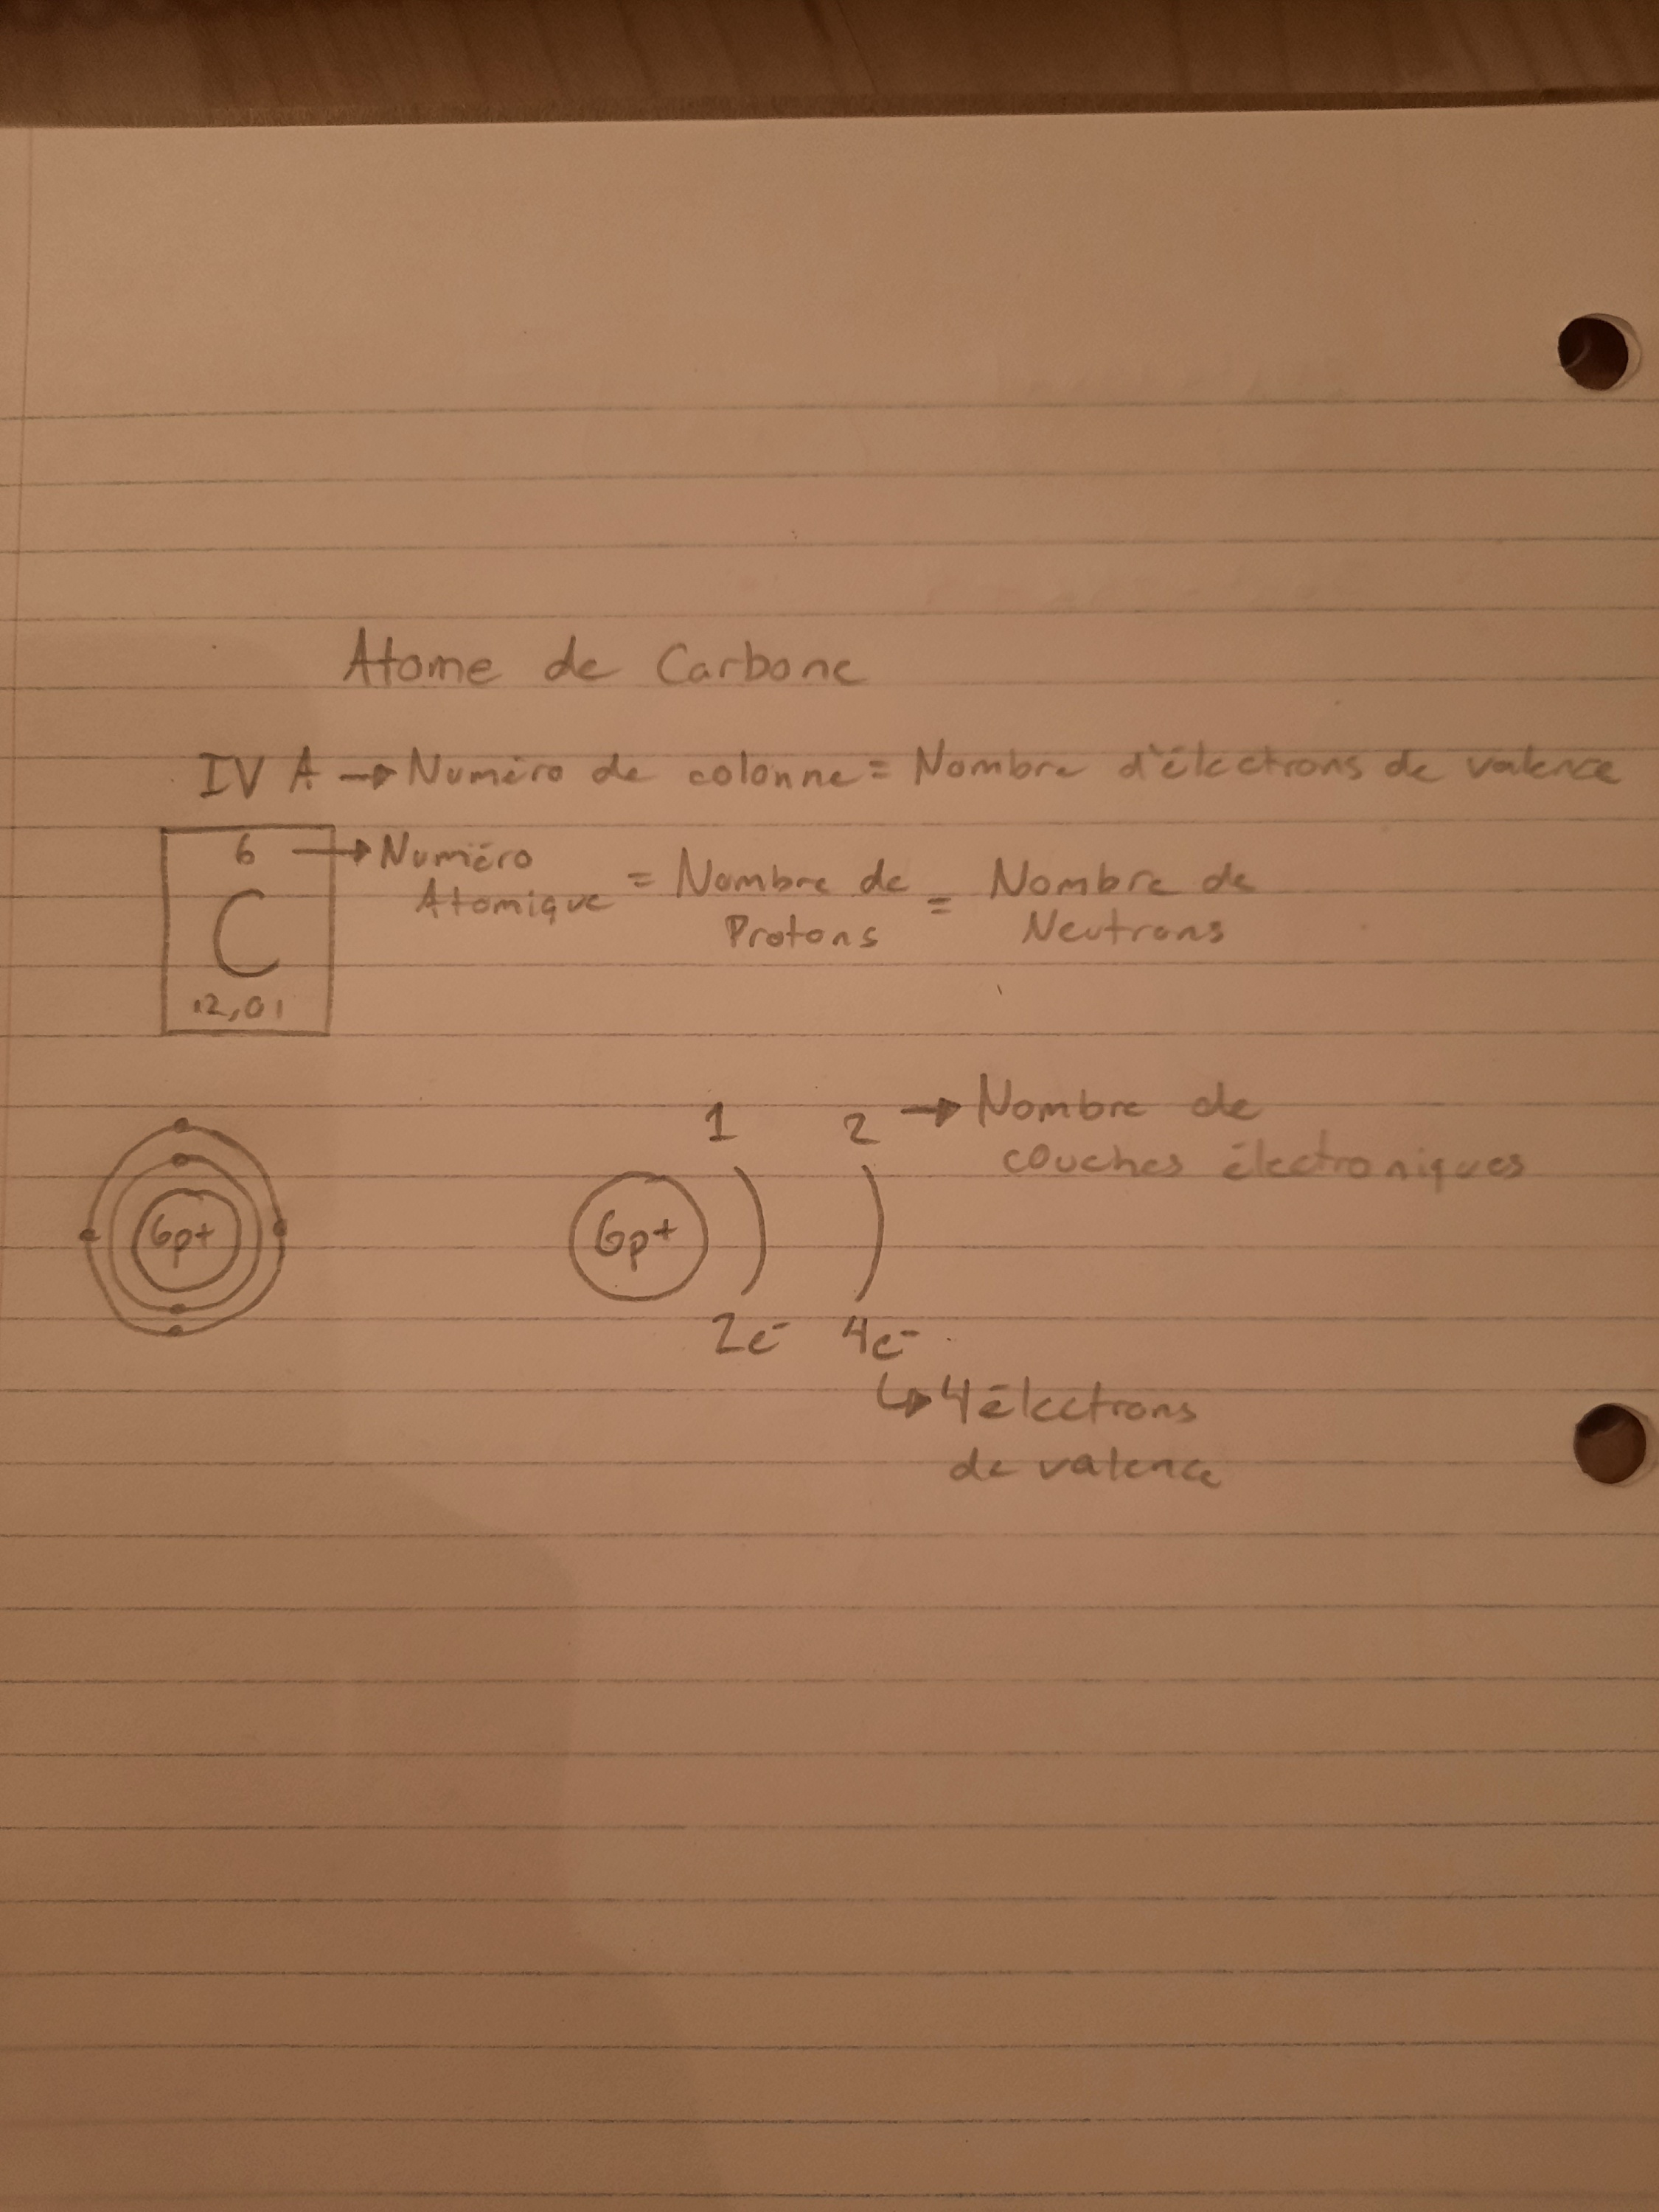 Atome de Carbone
IV A → Numéro de colonne = Nombre d'électrons de valence
6 → Numéro
Atomique = Nombre de
Protons = Nombre de
Neutrons
C
12,01
1 2 → Nombre de
couches électroniques
6p+ 6p+
2e- 4e-
↳ 4 électrons
de valence